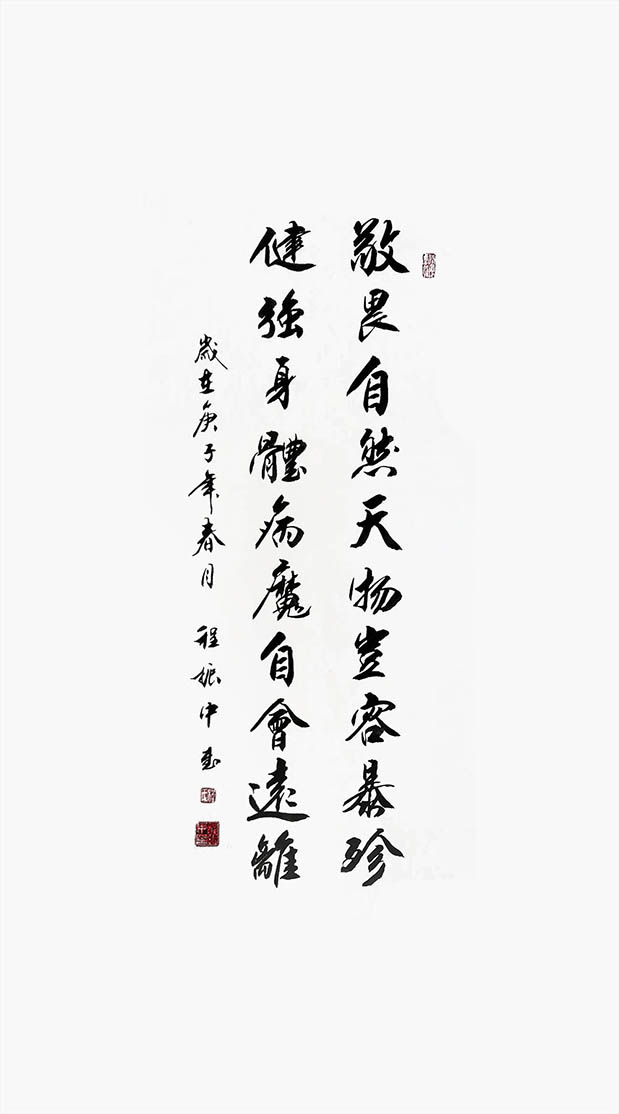 敬畏自然天物豈容暴殄
健強身體病魔自會遠離
歲在庚子年春月 程振中書